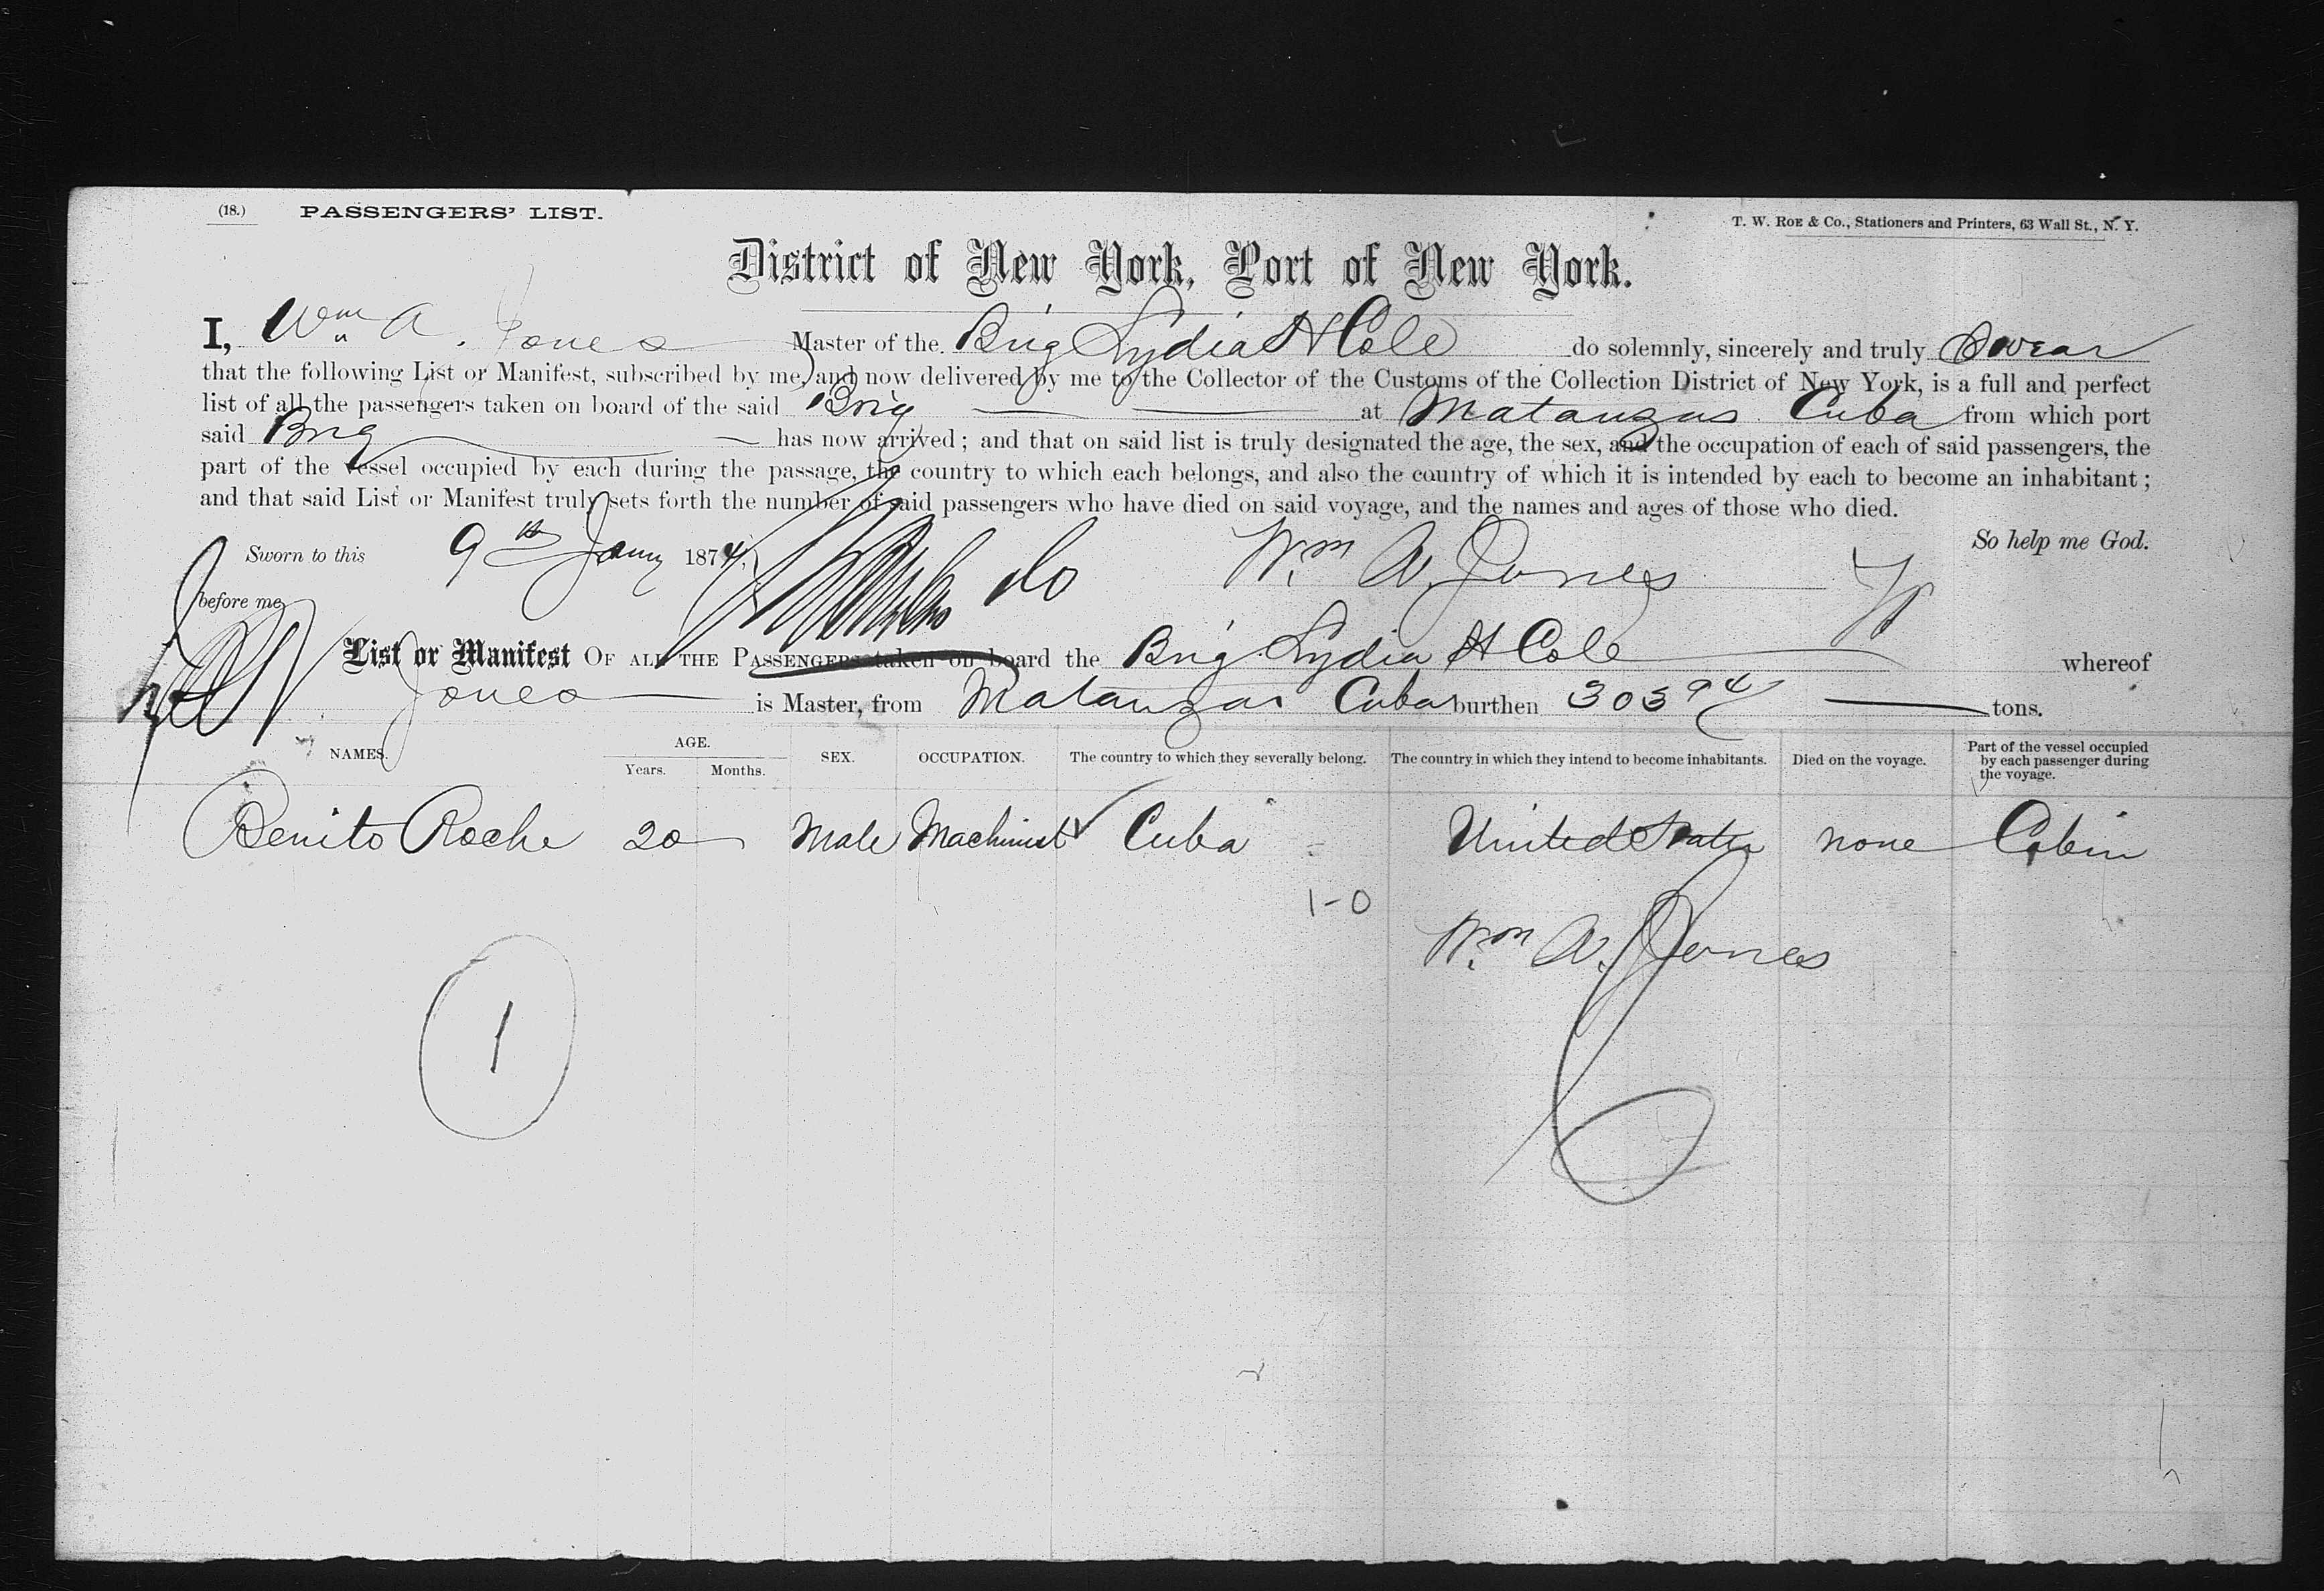 (18.) PASSENGERS' LIST. T. W. ROE & Co., Stationers and Printers, 63 Wall St., N. Y.
District of New York, Port of New York.
I, Wm A. Jones Master of the Brig Lydia H Cole do solemnly, sincerely and truly Swear
that the following List or Manifest, subscribed by me, and now delivered by me to the Collector of the Customs of the Collection District of New York, is a full and perfect
list of all the passengers taken on board of the said Brig at Matanzas Cuba from which port
said Brig has now arrived; and that on said list is truly designated the age, the sex, and the occupation of each of said passengers, the
part of the vessel occupied by each during the passage, the country to which each belongs, and also the country of which it is intended by each to become an inhabitant;
and that said List or Manifest truly sets forth the number of said passengers who have died on said voyage, and the names and ages of those who died.
So help me God.
Sworn to this 9th Jany 1874, Wm A. Jones
before me
List or Manifest OF ALL THE PASSENGERS taken on board the Brig Lydia H Cole whereof
Jones is Master, from Matanzas Cuba burthen 303 94 tons.
NAMES. AGE. Years. Months. SEX. OCCUPATION. The country to which they severally belong. The country in which they intend to become inhabitants. Died on the voyage. Part of the vessel occupied by each passenger during the voyage.
Benito Roche 20 Male Machinist Cuba United States none Cabin
1-0
Wm A. Jones
1